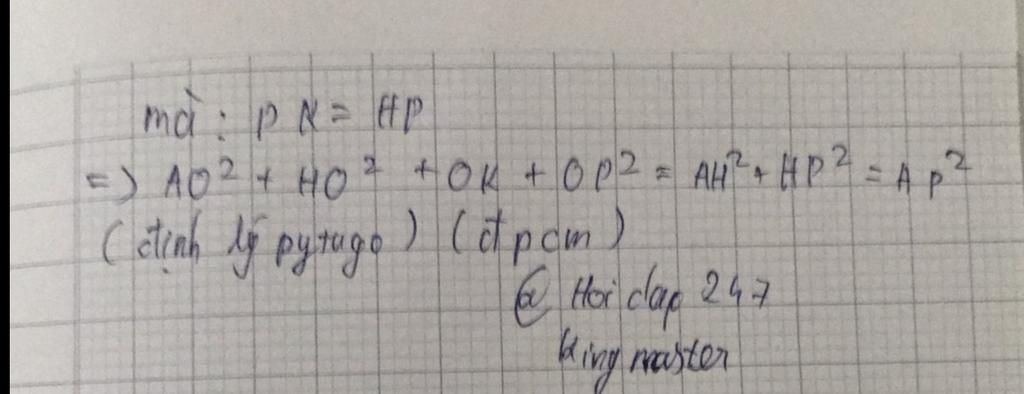 mà : PK = HP
=) AO² + HO² + OK + OP² = AH² + HP² = AP²
(định lý pytago) (đpcm)
@ Hoi dap 247
king master